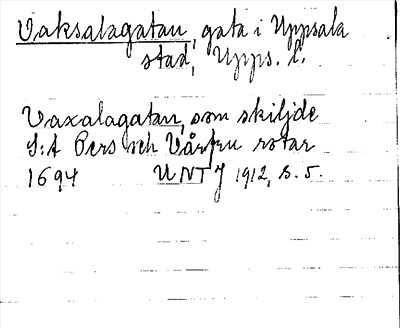 Vaksalagatan, gata i Uppsala
stad, Upps. l.
Vaxalagatan, som skiljde
S:t Pers och Vårfru rotar
1694 UNTJ 1912, s. 5.